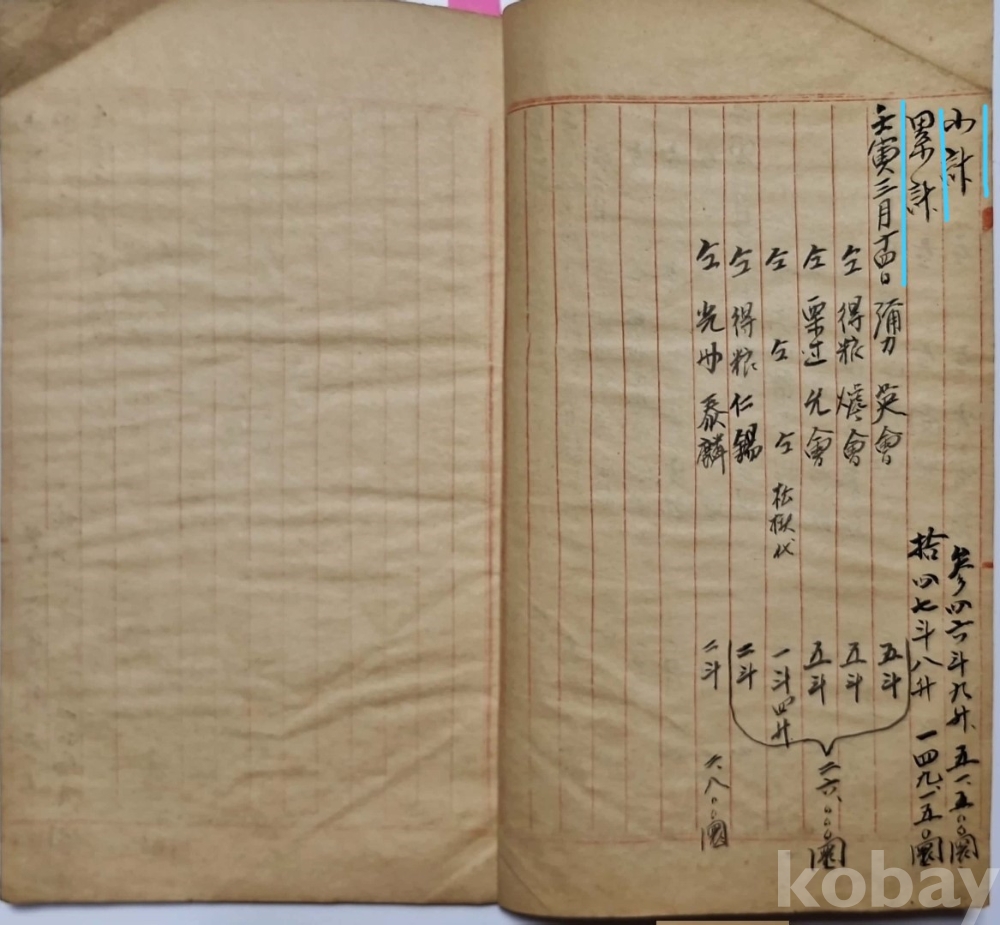 小計 參四六斗九升、五一、五〇〇圜
累計 拾四七斗八升 一四九、一五〇圜
壬寅三月十四日 彌力 英會 五斗
仝 得粮 會 五斗
仝 栗 會 五斗 二六、〇〇〇圜
仝 仝 仝 代 一斗四升
仝 得粮 仁錫 二斗
仝 光 泰麟 二斗 六、八〇〇圜
kobay